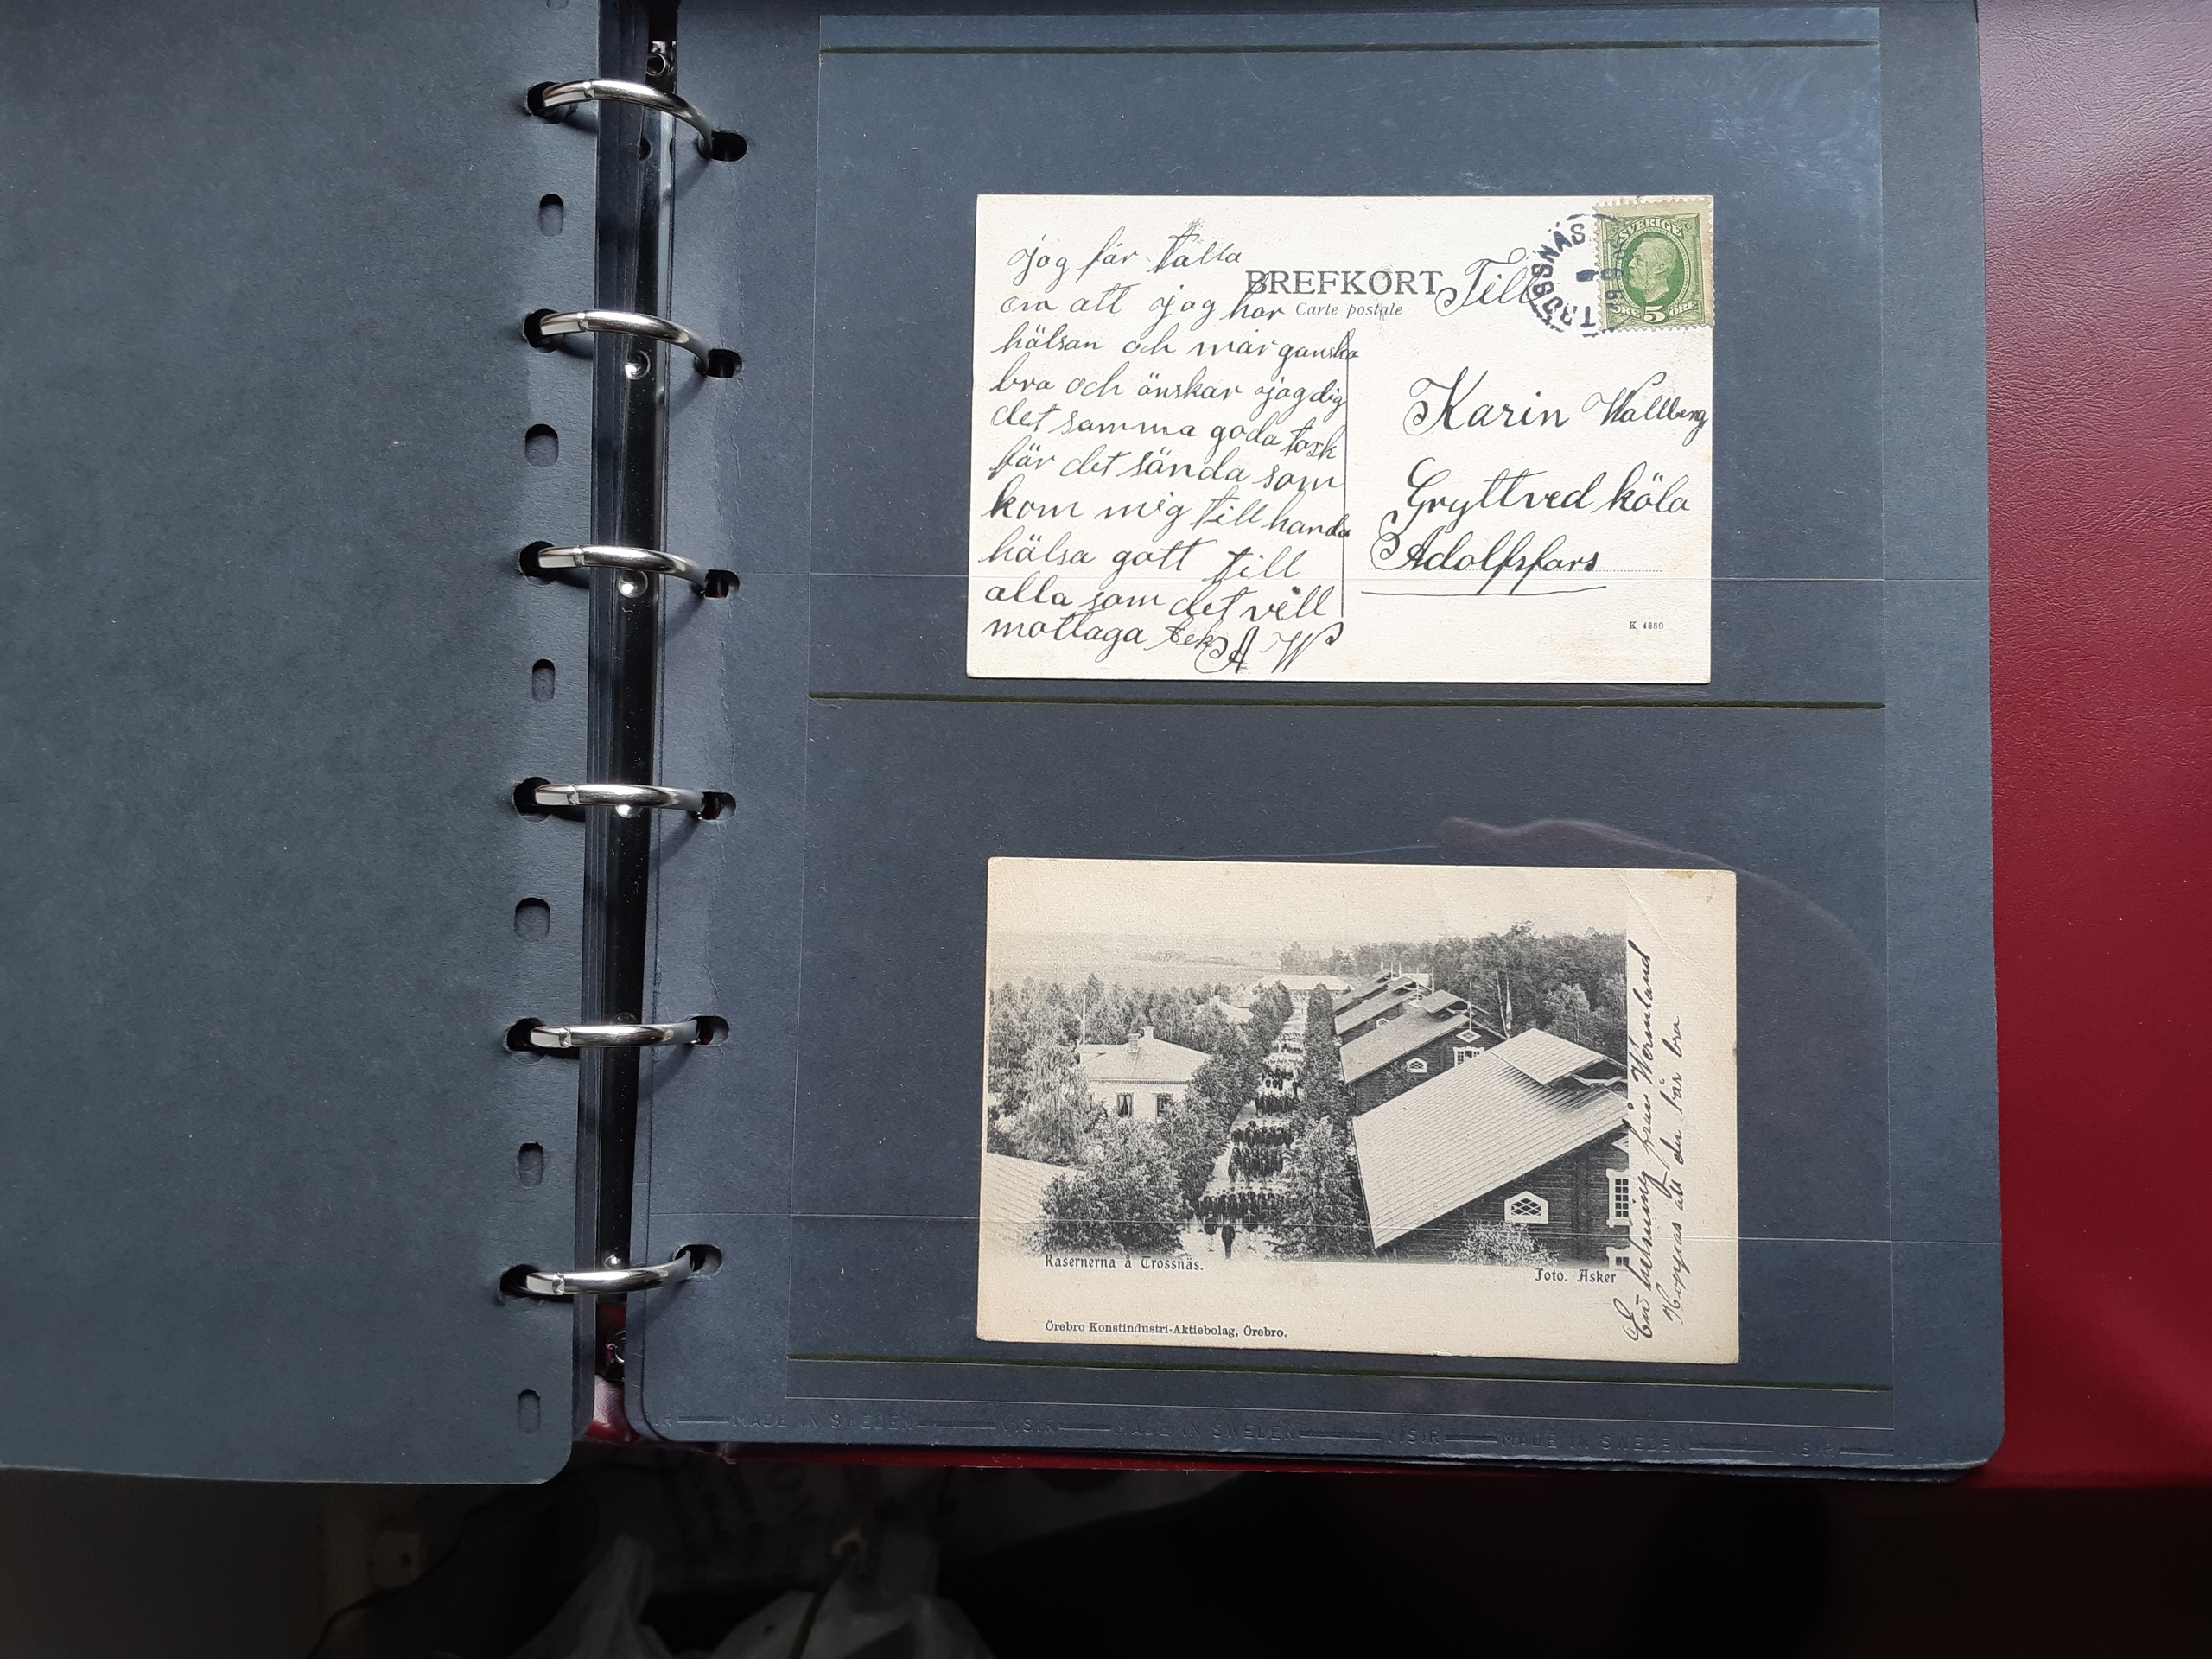 jag får talla
om att jag har
hälsan och mår ganska
bra och önskar jag dig
det samma goda task
får det sända som
kom mig till handa
hälsa gott till
alla som det vill
mottaga
A W
BREFKORT
Carte postale
Till
TROSSNÄS
SVERIGE
ÖRE 5 ÖRE
Karin Wallberg
Gryttved köla
Adolfsfors
K 4880
Kasernerna å Trossnäs.
Foto. Asker
Örebro Konstindustri-Aktiebolag, Örebro.
En helsning från Wermland
Hoppas att du får bra
MADE IN SWEDEN VISIR MADE IN SWEDEN VISIR MADE IN SWEDEN VISIR